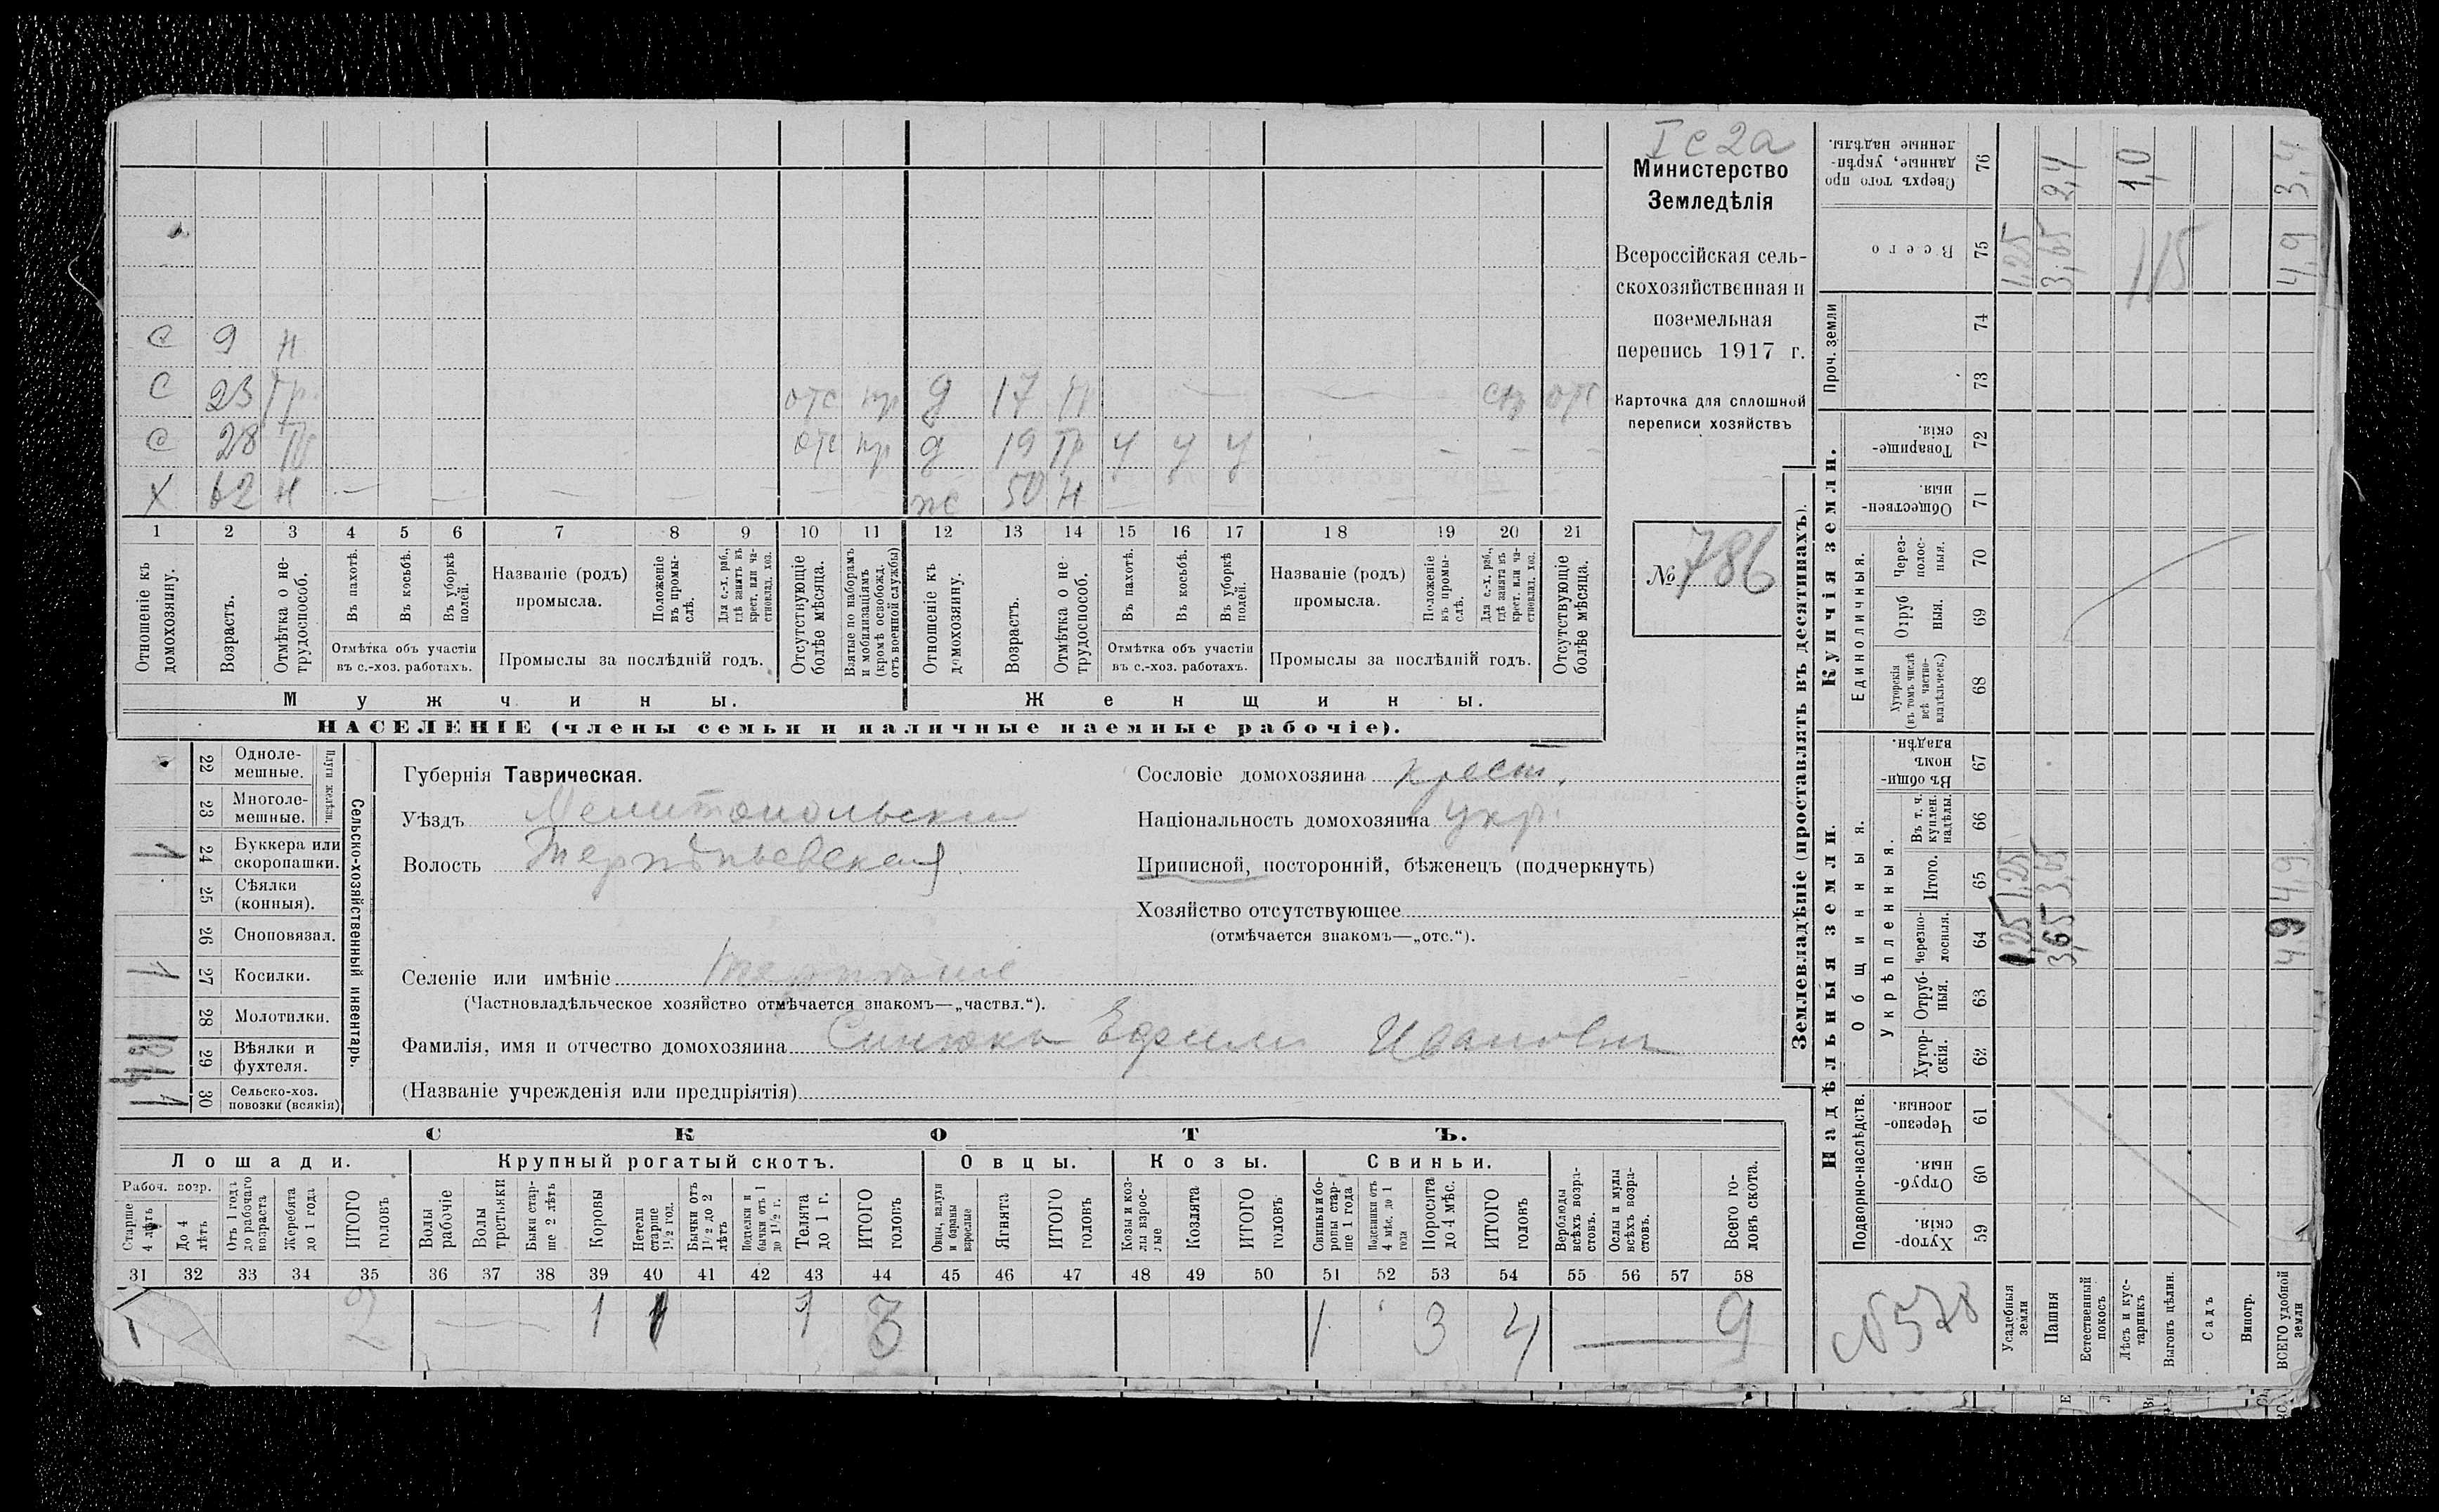 I с 2а
Министерство
Земледѣлія
Всероссійская сель-
скохозяйственная и
поземельная
перепись 1917 г.
Карточка для сплошной
переписи хозяйствъ
№ 786
С 9 н
С 23 Тр. отс пр д 17 н — — сп отс
С 28 Тр отс пр д 19 Тр у у у — — —
Х 62 н — — — — — — — ж 50 н — — —
1 2 3 4 5 6 7 8 9 10 11 12 13 14 15 16 17 18 19 20 21
Отношеніе къ домохозяину.
Возрастъ.
Отмѣтка о не-трудоспособ.
Въ пахотѣ.
Въ косьбѣ.
Въ уборкѣ полей.
Отмѣтка объ участіи
въ с.-хоз. работахъ.
Названіе (родъ)
промысла.
Положеніе въ промы-слѣ.
Для с.-х. раб., гдѣ занятъ въ крест. или ча-стновлад. хоз.
Промыслы за послѣдній годъ.
Отсутствующіе болѣе мѣсяца.
Взятые по наборамъ и мобилизаціямъ (кромѣ освобожд. отъ военной службы)
Отношеніе къ домохозяину.
Возрастъ.
Отмѣтка о не-трудоспособ.
Въ пахотѣ.
Въ косьбѣ.
Въ уборкѣ полей.
Отмѣтка объ участіи
въ с.-хоз. работахъ.
Названіе (родъ)
промысла.
Положеніе въ промы-слѣ.
Для с.-х. раб., гдѣ занята въ крест. или ча-стновлад. хоз.
Промыслы за послѣдній годъ.
Отсутствующіе болѣе мѣсяца.
Мужчины. Женщины.
НАСЕЛЕНІЕ (члены семьи и наличные наемные рабочіе).
Сельско-хозяйственный инвентарь.
Плуги желѣзн.
22 Одноле-мешные.
23 Многоле-мешные.
1 24 Буккера или скоропашки.
25 Сѣялки (конныя).
26 Сноповязал.
1 27 Косилки.
28 Молотилки.
29 Вѣялки и фухтеля.
1 30 Сельско-хоз. повозки (всякія)
Губернія Таврическая.
Уѣздъ Мелитопольскій
Волость Терпѣньевская
Селеніе или имѣніе Терпѣніе
(Частновладѣльческое хозяйство отмѣчается знакомъ—„частвл.“).
Фамилія, имя и отчество домохозяина Синюкъ Ефимъ Ивановъ
(Названіе учрежденія или предпріятія)
Сословіе домохозяина крест.
Національность домохозяина укр.
Приписной, посторонній, бѣженецъ (подчеркнуть)
Хозяйство отсутствующее
(отмѣчается знакомъ—„отс.“).
СКОТЪ.
Лошади. Крупный рогатый скотъ. Овцы. Козы. Свиньи.
Рабоч. возр.
Старше 4 лѣтъ
До 4 лѣтъ
Отъ 1 года до рабочаго возраста
Жеребята до 1 года
ИТОГО головъ
Волы рабочіе
Волы третьяки
Быки стар-ше 2 лѣтъ
Коровы
Нетели старше 1 1/2 год.
Бычки отъ 1 1/2 до 2 лѣтъ
Подтелки и бычки отъ 1 до 1 1/2 г.
Телята до 1 г.
ИТОГО головъ
Овцы, валухи и бараны взрослые
Ягнята
ИТОГО головъ
Козы и коз-лы взрос-лые
Козлята
ИТОГО головъ
Свиньи и бо-ровы стар-ше 1 года
Подсвинки отъ 4 мѣс. до 1 года
Поросята до 4 мѣс.
ИТОГО головъ
Верблюды всѣхъ возра-стовъ.
Ослы и мулы всѣхъ возра-стовъ.
Всего го-ловъ скота.
31 32 33 34 35 36 37 38 39 40 41 42 43 44 45 46 47 48 49 50 51 52 53 54 55 56 57 58
1 2 — 1 1 1 3 1 3 4 — 9
Землевладѣніе (проставлять въ десятинахъ).
Надѣльныя земли. Купчія земли. Проч. земли
Подворно-наслѣдств. Общинныя. Укрѣпленныя. Единоличныя.
59 Хутор-скія.
60 Отруб-ныя.
61 Черезпо-лосныя.
62 Хутор-скія.
63 Отруб-ныя.
64 Черезпо-лосныя.
65 Итого.
66 Въ т. ч. куплен. надѣлы.
67 Въ общи-номъ владѣн.
68 Хуторскія (въ томъ числѣ всѣ частно-владѣльческ.)
69 Отруб ныя.
70 Через-полос-ныя.
71 Обществен-ныя.
72 Товарище-скія.
73
74
75 Всего
76 Сверхъ того про данные, укрѣп-ленные надѣлы.
№ 578
Усадебныя земли 1,25 1,25 1,25
Пашня 3,65 3,65 3,65 2,4
Естественный покосъ
Лѣсъ и кус-тарникъ 1,0
Выгонъ цѣлин.
Садъ
Виногр.
ВСЕГО удобной земли 4,9 4,9 4,9 3,4